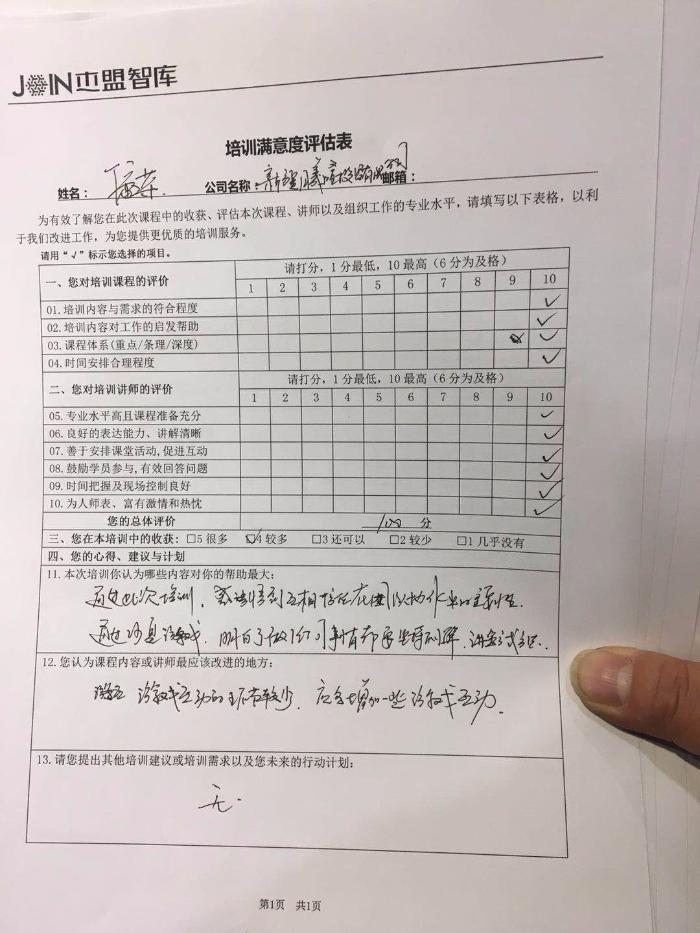 JOIN 中盟智库
培训满意度评估表
姓名： 公司名称： 新疆 公司 邮箱：
为有效了解您在此次课程中的收获、评估本次课程、讲师以及组织工作的专业水平，请填写以下表格，以利
于我们改进工作，为您提供更优质的培训服务。
请用“√”标示您选择的项目。
一、您对培训课程的评价 请打分，1分最低，10最高（6分为及格）
1 2 3 4 5 6 7 8 9 10
01.培训内容与需求的符合程度 ✓
02.培训内容对工作的启发帮助 ✓
03.课程体系(重点/条理/深度) ✓
04.时间安排合理程度 ✓
二、您对培训讲师的评价 请打分，1分最低，10最高（6分为及格）
1 2 3 4 5 6 7 8 9 10
05.专业水平高且课程准备充分 ✓
06.良好的表达能力、讲解清晰 ✓
07.善于安排课堂活动,促进互动 ✓
08.鼓励学员参与,有效回答问题 ✓
09.时间把握及现场控制良好 ✓
10.为人师表、富有激情和热忱 ✓
您的总体评价 100 分
三、您在本培训中的收获：□5很多 ☑4较多 □3还可以 □2较少 □1几乎没有
四、您的心得、建议与计划
11.本次培训你认为哪些内容对你的帮助最大：
通过此次培训，
通过沙盘游戏，明白了做任何事情都要
12.您认为课程内容或讲师最应该改进的地方：
游戏互动的环节较少，应多增加一些游戏互动。
13.请您提出其他培训建议或培训需求以及您未来的行动计划：
无.
第1页 共1页